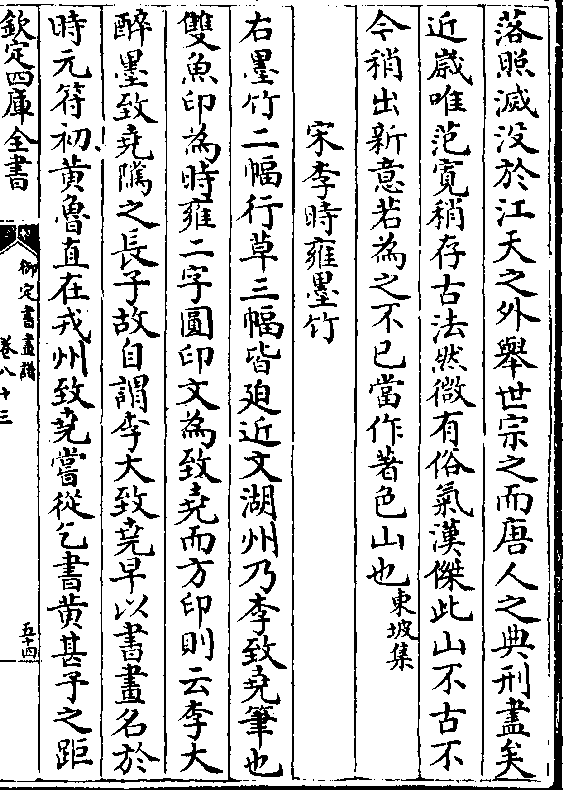 落照滅没於江天之外舉世宗之而唐人之典刑盡矣
近嵗唯范寛稍存古法然微有俗氣漢傑此山不古不
今稍出新意若為之不已當作著色山也東坡集
宋李時雍墨竹
右墨竹二幅行草三幅皆廹近文湖州乃李致堯筆也
雙魚印為時雍二字圓印文為致堯而方印則云李大
醉墨致堯隲之長子故自謂李大致堯早以書畫名於
時元符初黄魯直在戎州致堯嘗從乞書黄甚予之距
欽定四庫全書
御定書畫譜
卷八十三
五十四